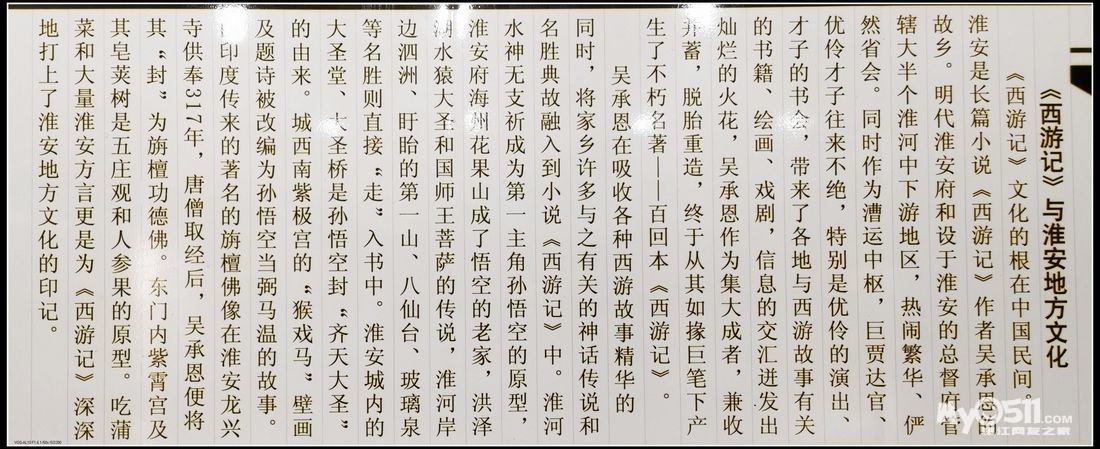 《西游记》与淮安地方文化
《西游记》文化的根在中国民间。
淮安是长篇小说《西游记》作者吴承恩的
故乡。明代淮安府和设于淮安的总督府管
辖大半个淮河中下游地区，热闹繁华、俨
然省会。同时作为漕运中枢，巨贾达官、
优伶才子往来不绝，特别是优伶的演出、
才子的书会，带来了各地与西游故事有关
的书籍、绘画、戏剧，信息的交汇迸发出
灿烂的火花，吴承恩作为集大成者，兼收
并蓄，脱胎重造，终于从其如掾巨笔下产
生了不朽名著——百回本《西游记》。
吴承恩在吸收各种西游故事精华的
同时，将家乡许多与之有关的神话传说和
名胜典故融入到小说《西游记》中。淮河
水神无支祈成为第一主角孙悟空的原型，
淮安府海州花果山成了悟空的老家，洪泽
湖水猿大圣和国师王菩萨的传说，淮河岸
边泗洲、盱眙的第一山、八仙台、玻璃泉
等名胜则直接“走”入书中。淮安城内的
大圣堂、大圣桥是孙悟空封“齐天大圣”
的由来。城西南紫极宫的“猴戏马”壁画
及题诗被改编为孙悟空当弼马温的故事。
印度传来的著名的旃檀佛像在淮安龙兴
寺供奉317年，唐僧取经后，吴承恩便将
其“封”为旃檀功德佛。东门内紫霄宫及
其皂荚树是五庄观和人参果的原型。吃蒲
菜和大量淮安方言更是为《西游记》深深
地打上了淮安地方文化的印记。
My0511.com